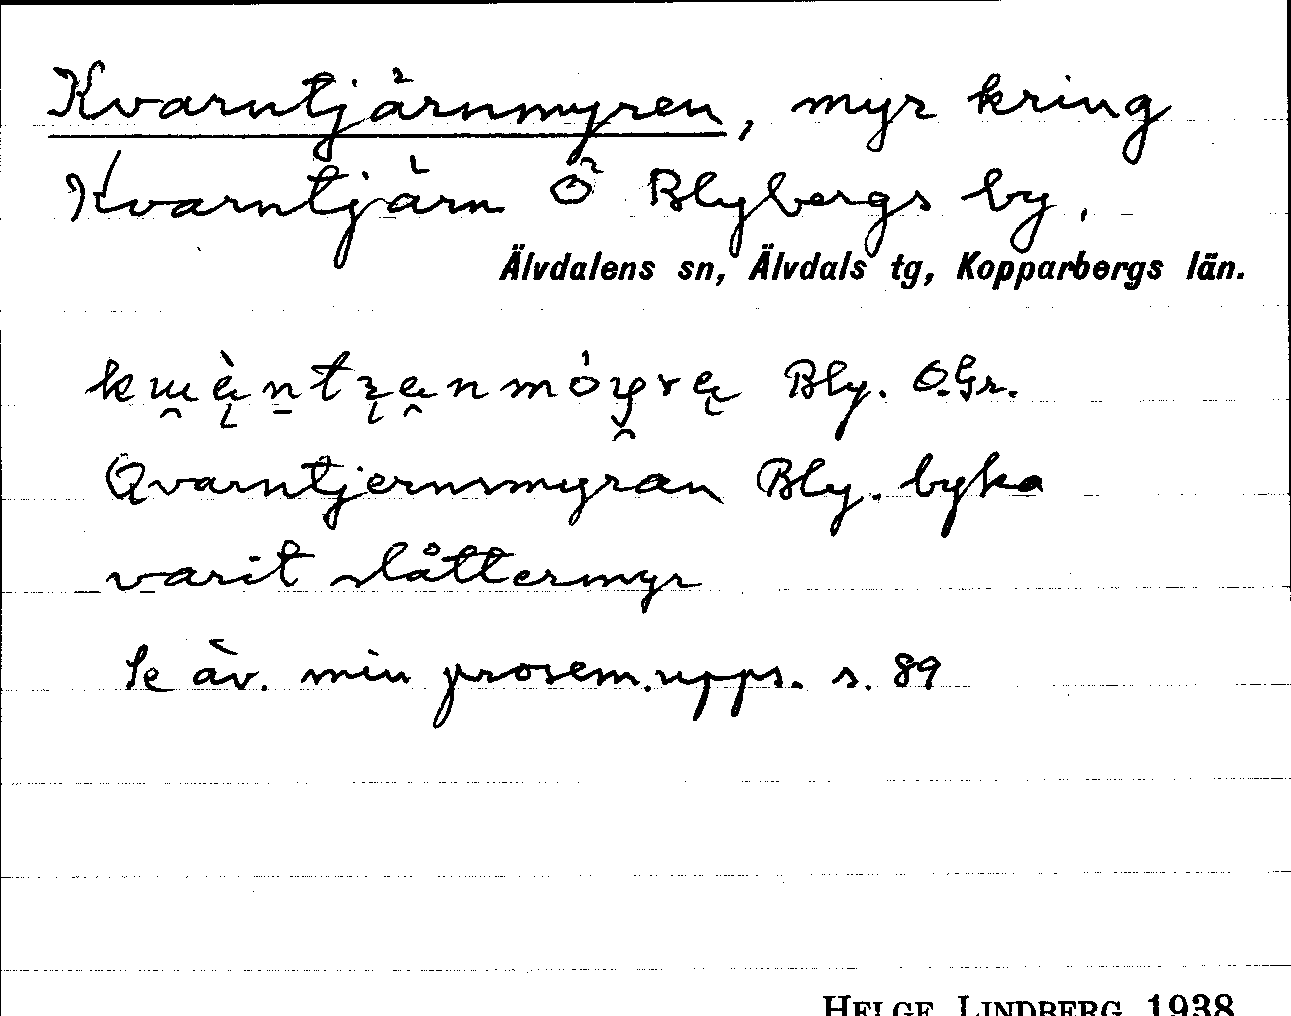 Kvarntjärnmyren, myr kring
Kvarntjärn Ö Blybergs by.
Älvdalens sn, Älvdals tg, Kopparbergs län.
Bly. O.Gr.
Qvarntjernsmyran Bly. byka
varit slåttermyr
Se äv. min prosem.upps. s. 89
HELGE LINDBERG 1938